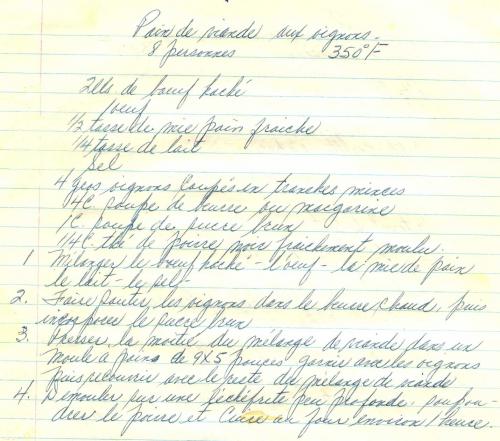 Pain de viande aux oignons.
8 personnes 350°F
2 lbs. de boeuf haché
1 oeuf
1/2 tasse de mie pain fraiche
1/4 tasse de lait
sel
4 gros oignons coupés en tranches minces
4 C. soupe de beurre ou margarine
1 C. soupe de sucre brun
1/4 C. thé de poivre noir fraichement moulu.
1 Mélanger le boeuf haché - l'oeuf - la mie de pain
le lait - le sel -
2. Faire sauter les oignons dans le beurre chaud, puis
incorporer le sucre brun
3. Presser, la moitié du mélange de viande dans un
moule à pains de 9X5 pouces garnir avec les oignons
puis recouvrir avec le reste du mélange de viande
4. Démouler sur une lèchefrite peu profonde, saupou-
drer le poivre et cuire au four environ 1 heure.